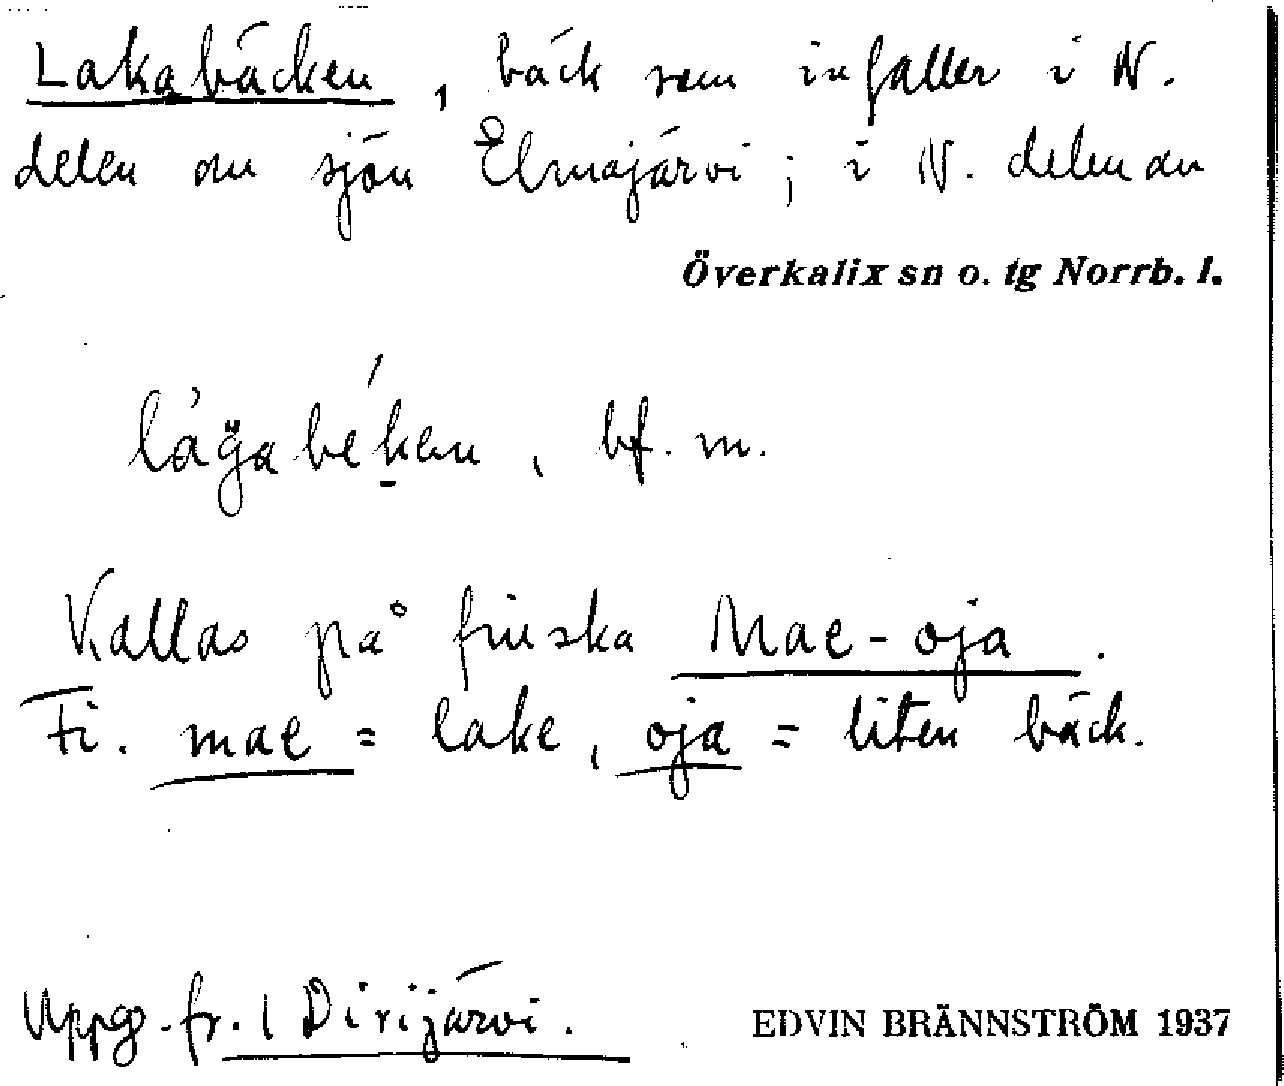 Lakabäcken, bäck som infaller i N.
delen av sjön Elmajärvi; i N. delen av
Överkalix sn o. tg Norrb. l.
bf. m.
Kallas på finska Mae-oja.
Fi. mae = lake, oja = liten bäck.
Uppg. fr. Dirijärvi.
EDVIN BRÄNNSTRÖM 1937